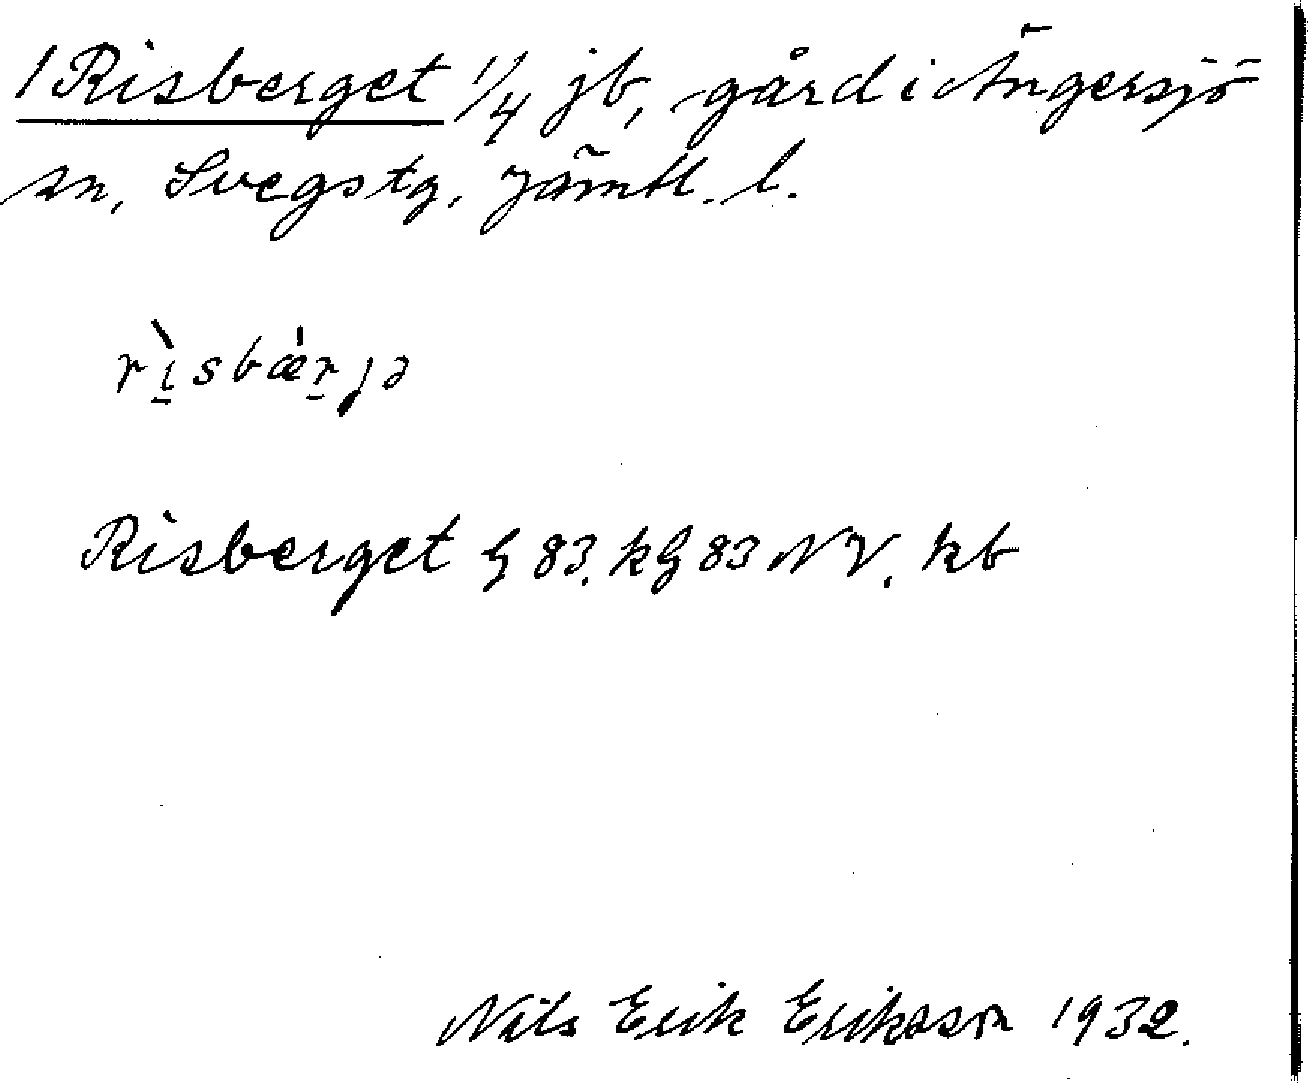 1 Risberget 1/4 jb, gård i Ängersjö
sn, Svegs tg. Jämtl. l.
rìsbæ̀rjə
Risberget G 83. kG 83 NV. kb
Nils Erik Eriksson 1932.